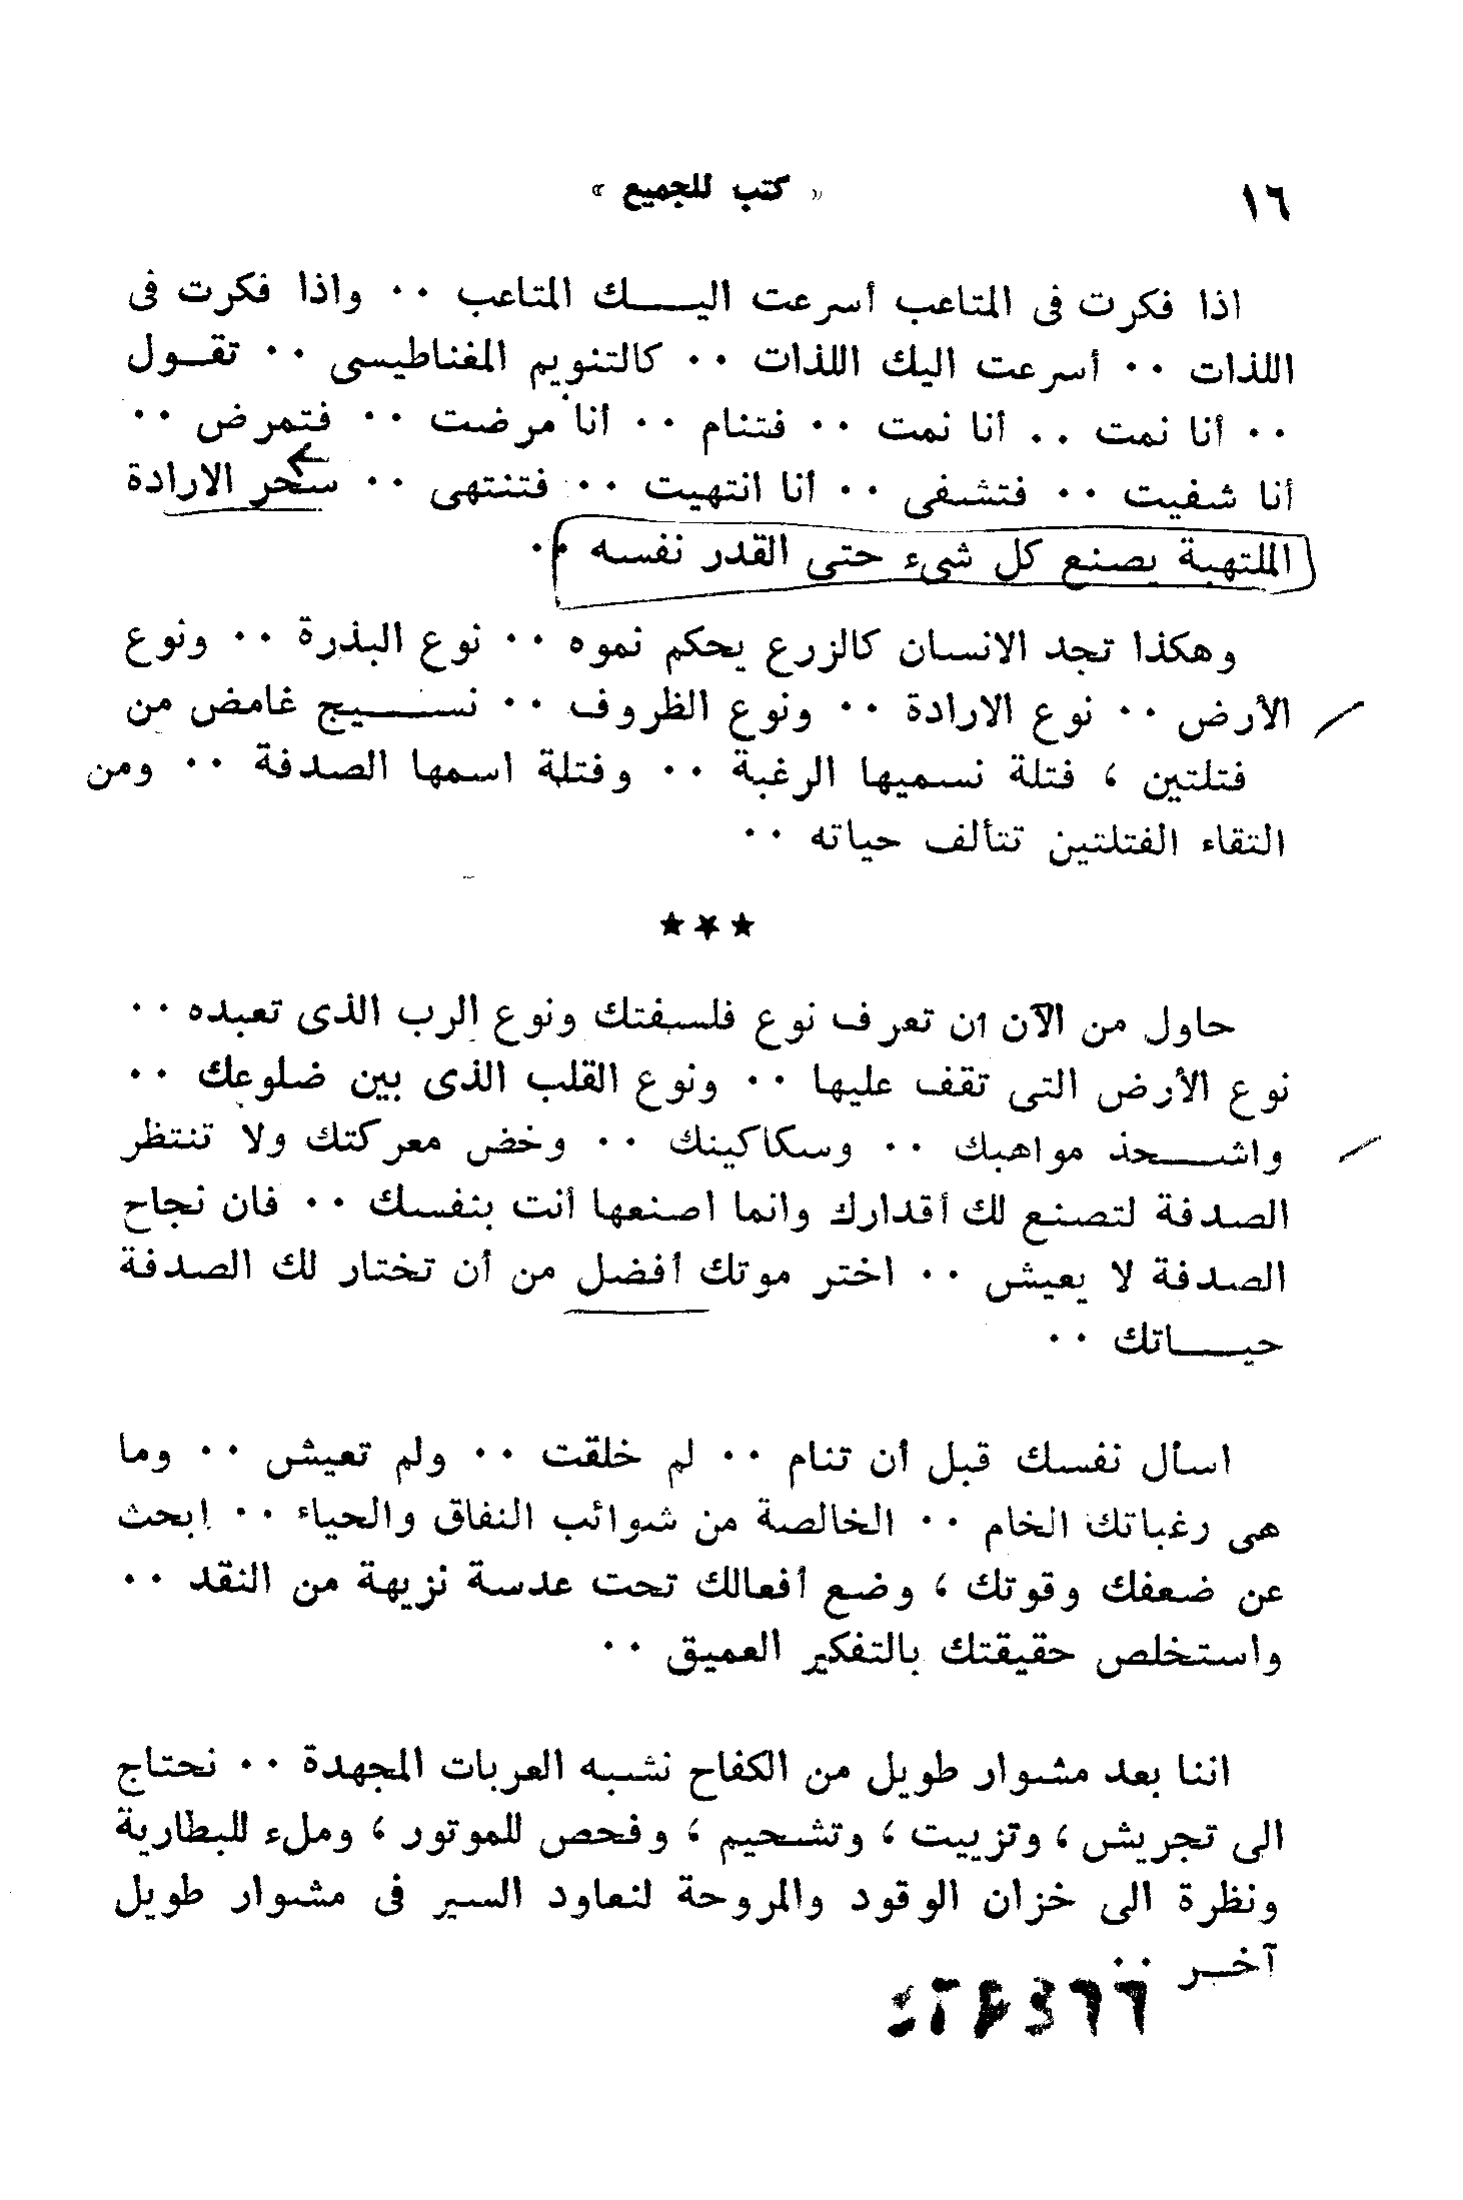 ١٦
« كتب للجميع »
اذا فكرت فى المتاعب أسرعت اليـــك المتاعب ٠٠ واذا فكرت فى
اللذات ٠٠ أسرعت اليك اللذات ٠٠ كالتنويم المغناطيسى ٠٠ تقـول
٠٠ أنا نمت ٠٠ أنا نمت ٠٠ فتنام ٠٠ أنا مرضت ٠٠ فتمرض ٠٠
أنا شفيت ٠٠ فتشفى ٠٠ أنا انتهيت ٠٠ فتنتهى ٠٠ سحر الارادة
الملتهبة يصنع كل شىء حتى القدر نفسه ٠٠
وهكذا تجد الانسان كالزرع يحكم نموه ٠٠ نوع البذرة ٠٠ ونوع
الأرض ٠٠ نوع الارادة ٠٠ ونوع الظروف ٠٠ نســـيج غامض من
فتلتين ، فتلة نسميها الرغبة ٠٠ وفتلة اسمها الصدفة ٠٠ ومن
التقاء الفتلتين تتألف حياته ٠٠
★★★
حاول من الآن أن تعرف نوع فلسفتك ونوع الرب الذى تعبده ٠٠
نوع الأرض التى تقف عليها ٠٠ ونوع القلب الذى بين ضلوعك ٠٠
واشـــحذ مواهبك ٠٠ وسكاكينك ٠٠ وخض معركتك ولا تنتظر
الصدفة لتصنع لك أقدارك وانما اصنعها أنت بنفسك ٠٠ فان نجاح
الصدفة لا يعيش ٠٠ اختر موتك أفضل من أن تختار لك الصدفة
حيـــاتك ٠٠
اسأل نفسك قبل أن تنام ٠٠ لم خلقت ٠٠ ولم تعيش ٠٠ وما
هى رغباتك الخام ٠٠ الخالصة من شوائب النفاق والحياء ٠٠ ابحث
عن ضعفك وقوتك ، وضع أفعالك تحت عدسة نزيهة من النقد ٠٠
واستخلص حقيقتك بالتفكير العميق ٠٠
اننا بعد مشوار طويل من الكفاح نشبه العربات المجهدة ٠٠ نحتاج
الى تجريش ، وتزييت ، وتشحيم ، وفحص للموتور ، وملء للبطارية
ونظرة الى خزان الوقود والمروحة لنعاود السير فى مشوار طويل
آخـر ٠٠